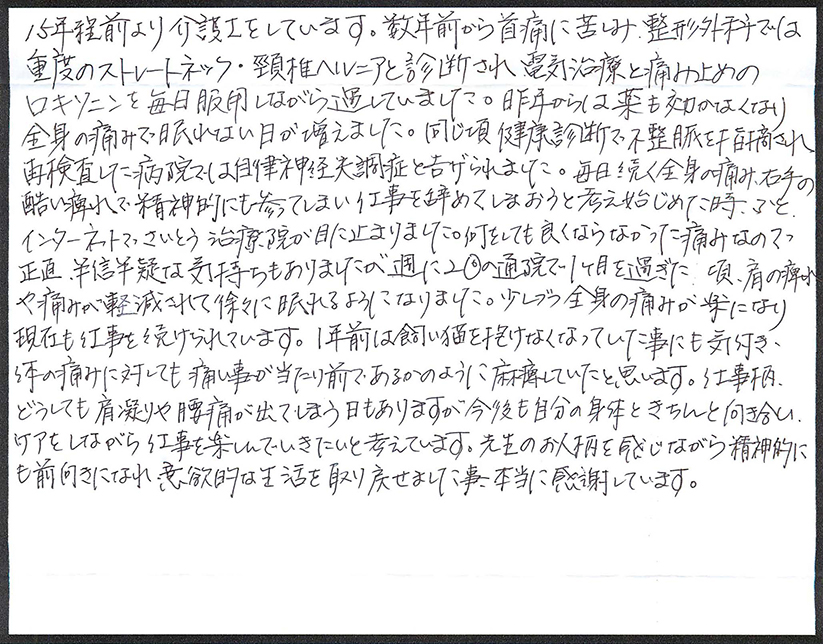 15年程前より介護士をしています。数年前から首痛に苦しみ、整形外科では
重度のストレートネック・頸椎ヘルニアと診断され、電気治療と痛み止めの
ロキソニンを毎日服用しながら過していました。昨年からは薬も効かなくなり
全身の痛みで眠れない日が増えました。同じ頃、健康診断で不整脈を指摘され
再検査した病院では自律神経失調症と告げられました。毎日続く全身の痛み、右手の
酷い痺れで精神的にも参ってしまい仕事を辞めてしまおうと考え始じめた時、ふと
インターネットでさいとう治療院が目に止まりました。何をしても良くならなかった痛みなので
正直、半信半疑な気持ちもありましたが週に2回の通院で1ヶ月を過ぎた頃、肩の痺れ
や痛みが軽減されて徐々に眠れるようになりました。少しづつ全身の痛みが楽になり
現在も仕事を続けられています。1年前は飼い猫を抱けなくなっていた事にも気付き、
体の痛みに対しても痛い事が当たり前であるかのように麻痺していたと思います。仕事柄、
どうしても肩凝りや腰痛が出てしまう日もありますが今後も自分の身体ときちんと向き合い、
ケアをしながら仕事を楽しんでいきたいと考えています。先生のお人柄を感じながら精神的に
も前向きになれ、意欲的な生活を取り戻せました事、本当に感謝しています。